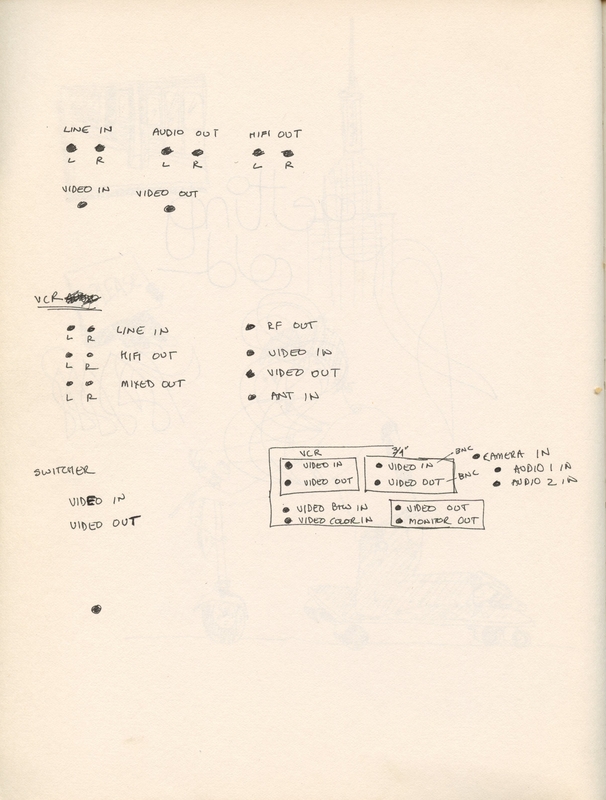 LINE IN AUDIO OUT HIFI OUT
L R L R L R
VIDEO IN VIDEO OUT
VCR
L R LINE IN
L R HIFI OUT
L R MIXED OUT
RF OUT
VIDEO IN
VIDEO OUT
ANT IN
SWITCHER
VIDEO IN
VIDEO OUT
VCR
VIDEO IN
VIDEO OUT
3/4"
VIDEO IN BNC
VIDEO OUT BNC
VIDEO B+W IN
VIDEO COLOR IN
VIDEO OUT
MONITOR OUT
CAMERA IN
AUDIO 1 IN
AUDIO 2 IN